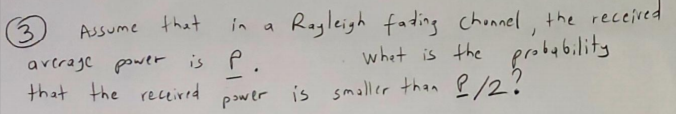 ③ Assume that in a Rayleigh fading channel, the received
average power is P. What is the probability
that the received power is smaller than P/2?